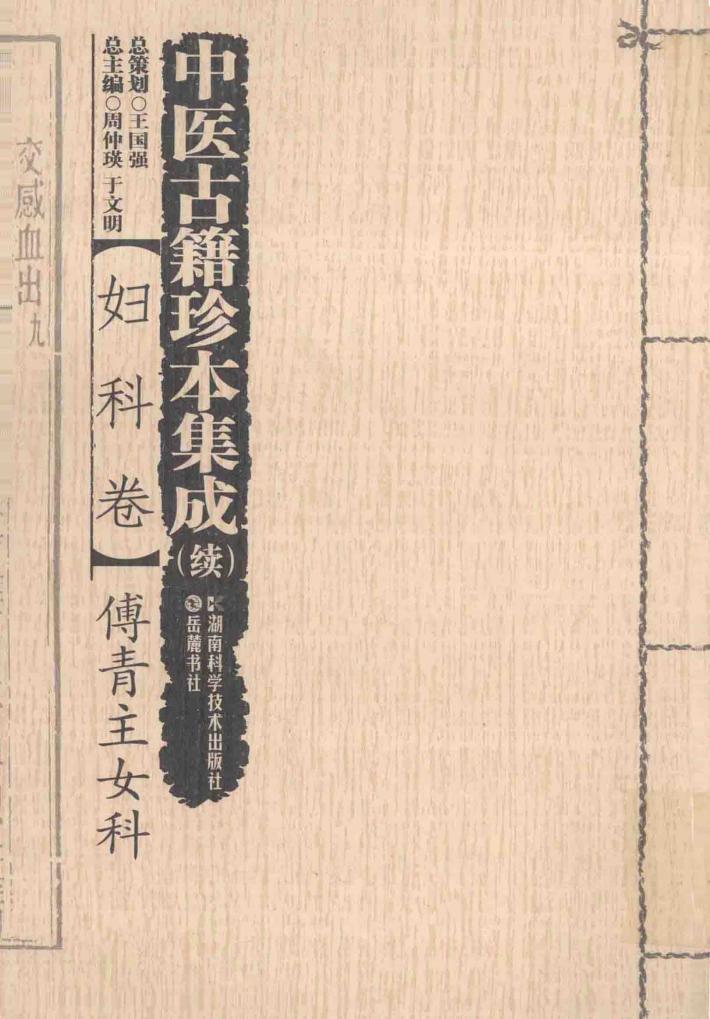 中医古籍珍本集成
（续）
湖南科学技术出版社
岳麓书社
总策划○王国强
总主编○周仲瑛 于文明
【妇科卷】
傅青主女科
交感血出九